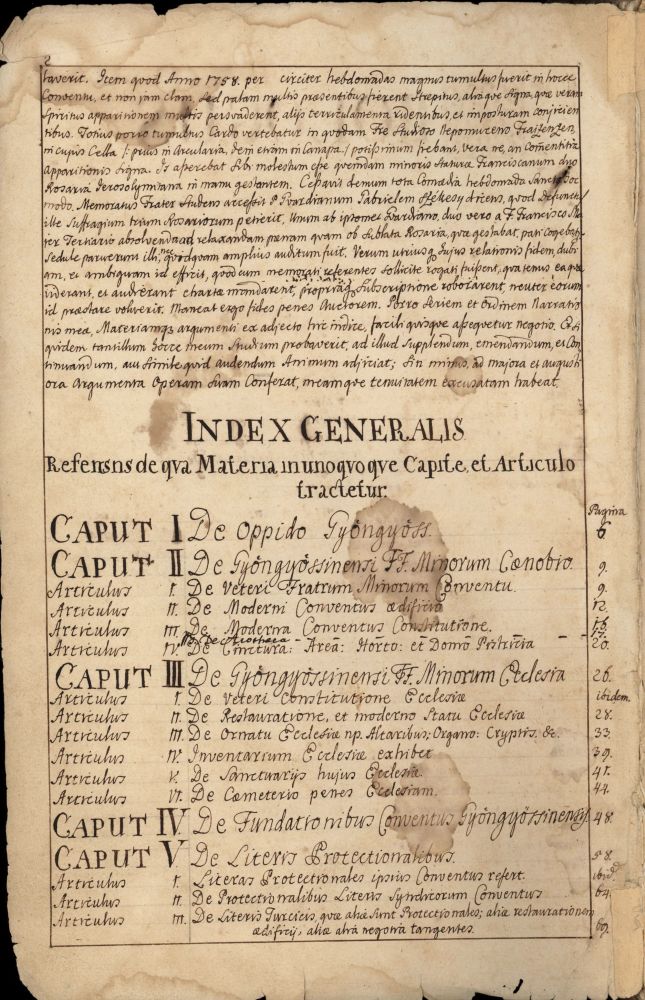 2
taverit. Item quod Anno 1758. per circiter hebdomadas magnus tumultus fuerit in hocce
Conventu, et non jam clam, sed palam multis praesentibus fierent strepitus, aliaque signa, quae veram
Spiritus apparitionem multis persvaderent, alijs terriculamenta ridentibus, et imposturam conjicien
tibus. Totius porro tumultus Cardo vertebatur in quodam Fre Studioso Nepomuceno
in cujus Cella /: prius in Arcularia, dein etiam in Canapa :/ potissimum fiebant, vera ne, an Commentitia
Apparitionis Signa. Is asserebat sibi molestum esse quemdam minoris staturae Franciscanum duo
Rosaria Jerosolymitana in manu gestantem. Cessavit demum tota Comaedia hebdomada Sancta hoc
modo. Memoratus Frater Studens accessit P. Gvardianum Gabrielem dicens, quod Defunctus
ille Suffragium trium Rosariorum petierit, Unum ab ipsomet Gvardiano, duo vero a F. Francisco
ter Tertiario absolvenda ad relaxandam paenam quam ob sublata Rosaria, quae gestabat, pati Cogebatur
Sedule paruerunt illi, nec quidquam amplius auditum fuit. Verum utriusq hujus relationis fidem, dubi
am, et ambiguam id efficit, quod cum memorati referentes sollicite rogati fuissent, quatenus ea quae
viderant, et audierant chartae mandarent, propriaq Subscriptione roborarent, neuter eorum
id praestare voluerit. Maneat ergo fides penes Auctorem. Porro Seriem et Ordinem Narratio
nis meae, Materiamq argumenti ex adjecto hic indice, facili quisque assequetur negotio. Qui
quidem tantillum hocce meum Studium probaverit, ad illud Supplendum, emendandum, et Con
tinuandum, aut simile quid audendum Animum adjiciat; Sin minus, ad majora et augusti
ora Argumenta Operam suam Conferat, meamque tenuitatem excusatam habeat.
INDEX GENERALIS
Referens de qva Materia in unoqvoqve Capite, et Articulo
tractetur.
Pagina
CAPUT I De Oppido Gyöngyöss. 6
CAPUT II De Gyöngyössinensi FF. Minorum Caenobio. 9.
Articulus I. De Veteri Fratrum Minorum Conventu. 9.
Articulus II. De Moderni Conventus aedificio 12.
Articulus III. De Moderna Conventus Constitutione. 16.
17.
Articulus IV. De Cinctura: Area: Horto: et Domo 20.
CAPUT III De Gyöngyössinensi FF. Minorum Ecclesia 26.
Articulus I. De Veteri Constitutione Ecclesiae ibidem.
Articulus II. De Restauratione, et moderno Statu Ecclesiae 28.
Articulus III. De Ornatu Ecclesiae np. Altaribus: Organo: Cryptis. &c. 33.
Articulus IV. Inventarium Ecclesiae exhibet 39.
Articulus V. De Sanctuarijs hujus Ecclesiae. 41.
Articulus VI. De Caemeterio penes Ecclesiam. 44.
CAPUT IV De Fundationibus Conventus Gyöngyössinensis 48.
CAPUT V De Literis Protectionalibus. 58.
Articulus I. Literas Protectionales ipsius Conventus refert. ibid.
Articulus II. De Protectionalibus Literis Syndicorum Conventus 64.
Articulus III. De Literis Turcicis, quae aliae sunt Protectionales; aliae restaurationem
aedificij; aliae alia negotia tangentes. 69.